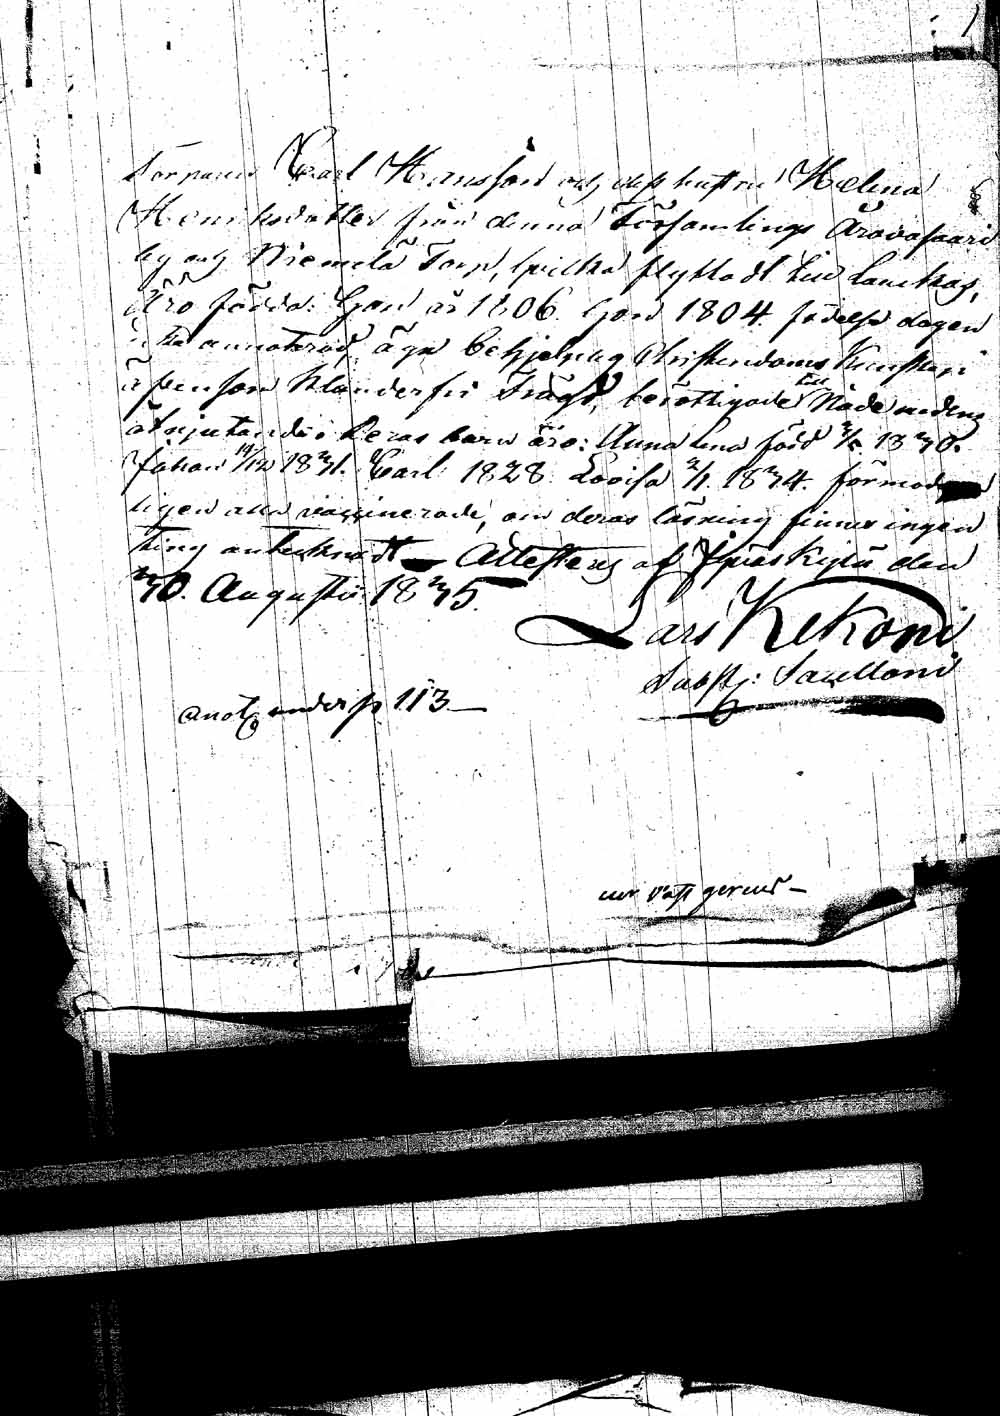 Torparen Carl Hansson och dess hustru Helena
Henriksdotter från denna Församlings Äravasaari
by och Niemelä Torp, hvilka flyttadt till Lauckas,
Äro födda: Han år 1806. Hon 1804. födelse dagen
annoterad, äga behjelpelig Christendoms Kunskap
äfven som klanderfri Frägd, berättigade till Nådemedlens
åtnjutande. Deras barn äro: Anna Lena född 1830.
Johan 19/12 1831. Carl 1828. Lovisa 2/1 1834. förmod
ligen alla vaccinerade, om deras läsning finnes ingen
ting antecknadt — Attesteras af Jyväskylä den
30. Augusti 1835.
Lars Kekoni
Subst: Sacellani
anot. under p. 113 —